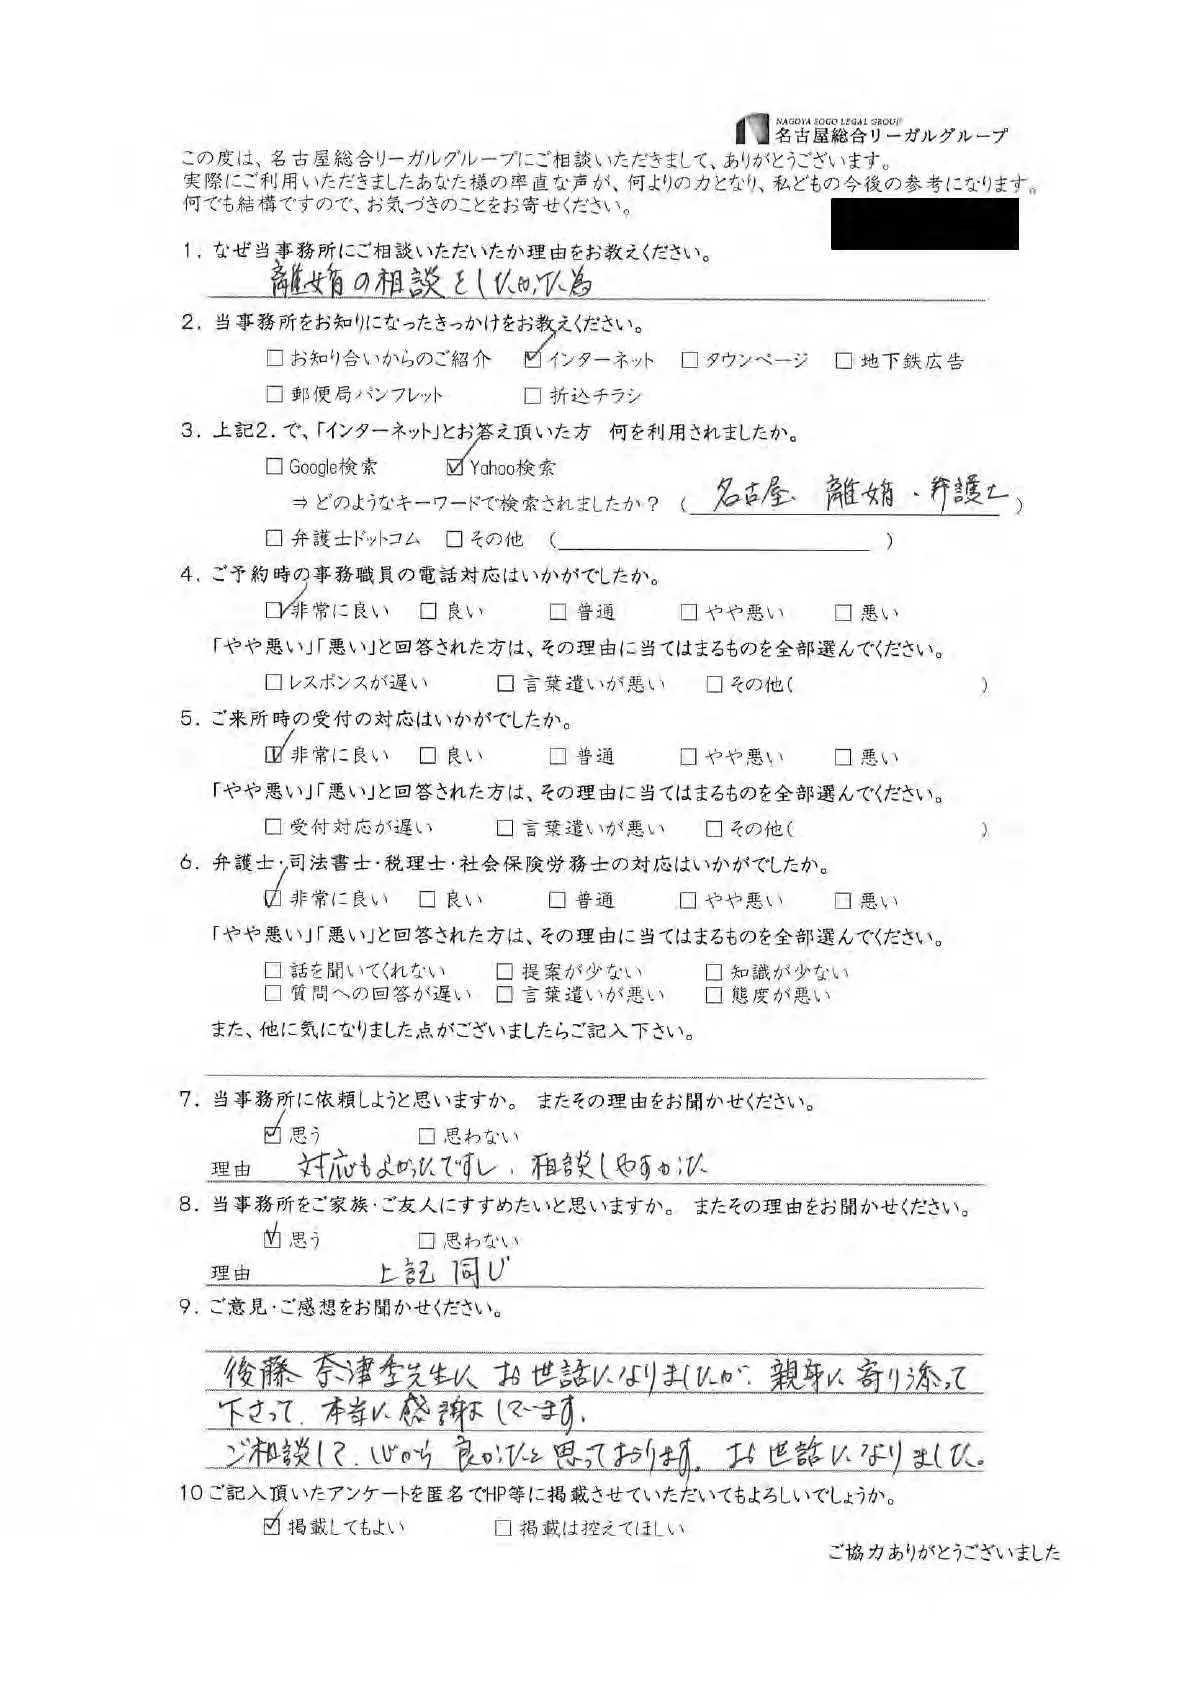 NAGOYA SOGO LEGAL GROUP
名古屋総合リーガルグループ
この度は、名古屋総合リーガルグループにご相談いただきまして、ありがとうございます。
実際にご利用いただきましたあなた様の率直な声が、何よりの力となり、私どもの今後の参考になります。
何でも結構ですので、お気づきのことをお寄せください。
1. なぜ当事務所にご相談いただいたか理由をお教えください。
離婚の相談をしたかった為
2. 当事務所をお知りになったきっかけをお教えください。
□ お知り合いからのご紹介 ☑ インターネット □ タウンページ □ 地下鉄広告
□ 郵便局パンフレット □ 折込チラシ
3. 上記2.で、「インターネット」とお答え頂いた方 何を利用されましたか。
□ Google検索 ☑ Yahoo検索
⇒ どのようなキーワードで検索されましたか? (名古屋、離婚・弁護士)
□ 弁護士ドットコム □ その他 ( )
4. ご予約時の事務職員の電話対応はいかがでしたか。
☑ 非常に良い □ 良い □ 普通 □ やや悪い □ 悪い
「やや悪い」「悪い」と回答された方は、その理由に当てはまるものを全部選んでください。
□ レスポンスが遅い □ 言葉遣いが悪い □ その他( )
5. ご来所時の受付の対応はいかがでしたか。
☑ 非常に良い □ 良い □ 普通 □ やや悪い □ 悪い
「やや悪い」「悪い」と回答された方は、その理由に当てはまるものを全部選んでください。
□ 受付対応が遅い □ 言葉遣いが悪い □ その他( )
6. 弁護士・司法書士・税理士・社会保険労務士の対応はいかがでしたか。
☑ 非常に良い □ 良い □ 普通 □ やや悪い □ 悪い
「やや悪い」「悪い」と回答された方は、その理由に当てはまるものを全部選んでください。
□ 話を聞いてくれない □ 提案が少ない □ 知識が少ない
□ 質問への回答が遅い □ 言葉遣いが悪い □ 態度が悪い
また、他に気になりました点がございましたらご記入下さい。
7. 当事務所に依頼しようと思いますか。 またその理由をお聞かせください。
☑ 思う □ 思わない
理由 対応もよかったですし、相談しやすかった
8. 当事務所をご家族・ご友人にすすめたいと思いますか。 またその理由をお聞かせください。
☑ 思う □ 思わない
理由 上記同じ
9. ご意見・ご感想をお聞かせください。
後藤奈津季先生に お世話になりましたが、親身に寄り添って
下さって、本当に感謝しています。
ご相談して、心から良かったと思っております。お世話になりました。
10 ご記入頂いたアンケートを匿名でHP等に掲載させていただいてもよろしいでしょうか。
☑ 掲載してもよい □ 掲載は控えてほしい
ご協力ありがとうございました